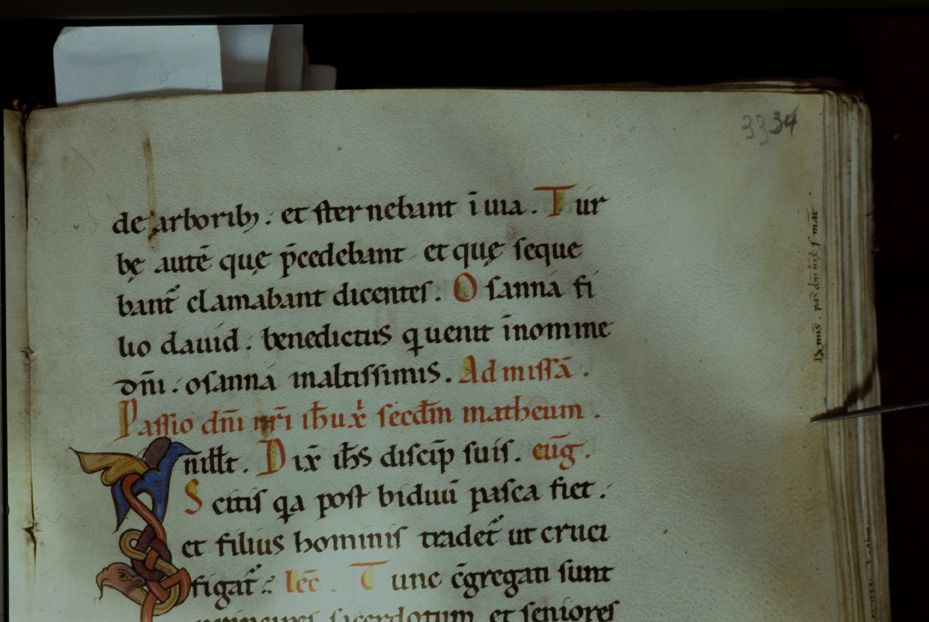 3334
de arborib; . et sternebant ī uia . Tur
bę autē quę p̄cedebant et quę seque
bant᷑ clamabant dicentes . Osanna fi
lio dauid . benedictus q uenit īnomine
dn̄i . osanna inaltissimis . Ad missā .
Passio dn̄i nr̄i ih̄u xp̄i secd̄m matheum .
In illt . Dix̄ ih̄s discip̄ suis . eūg .
Scitis qa post biduū pasca fiet .
et filius hominis tradet᷑ ut cruci
figat᷑ . lēc . Tunc c̄gregati sunt
principes sacerdotum et seniores